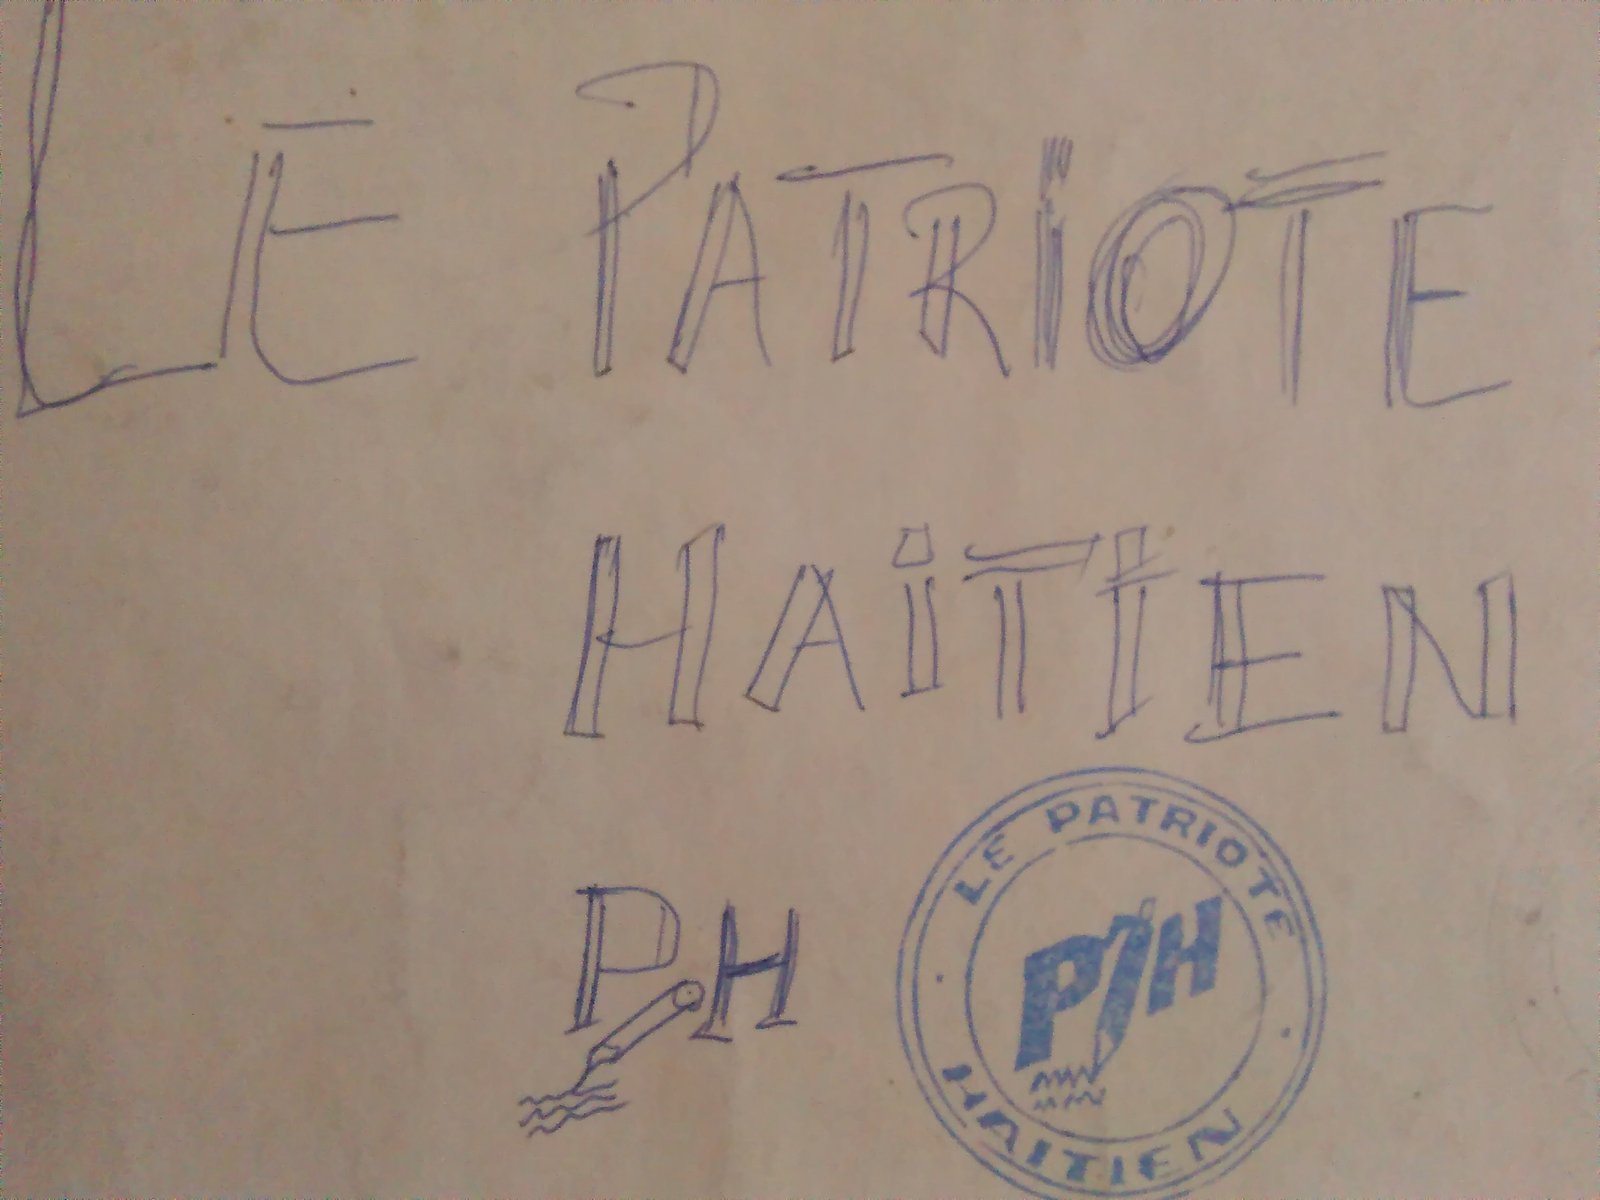 LE PATRiOTE
HAiTiEN
PH
LE PATRIOTE
PH
HAITIEN